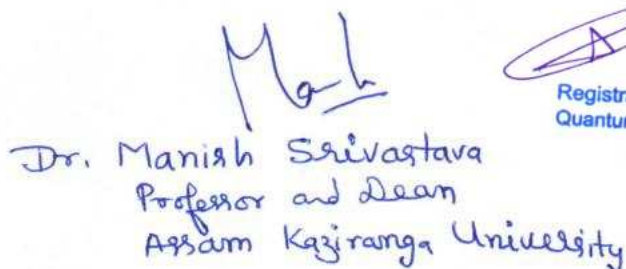 Registr
Quantu
Dr. Manish Srivastava
Professor and Dean
Assam Kaziranga University